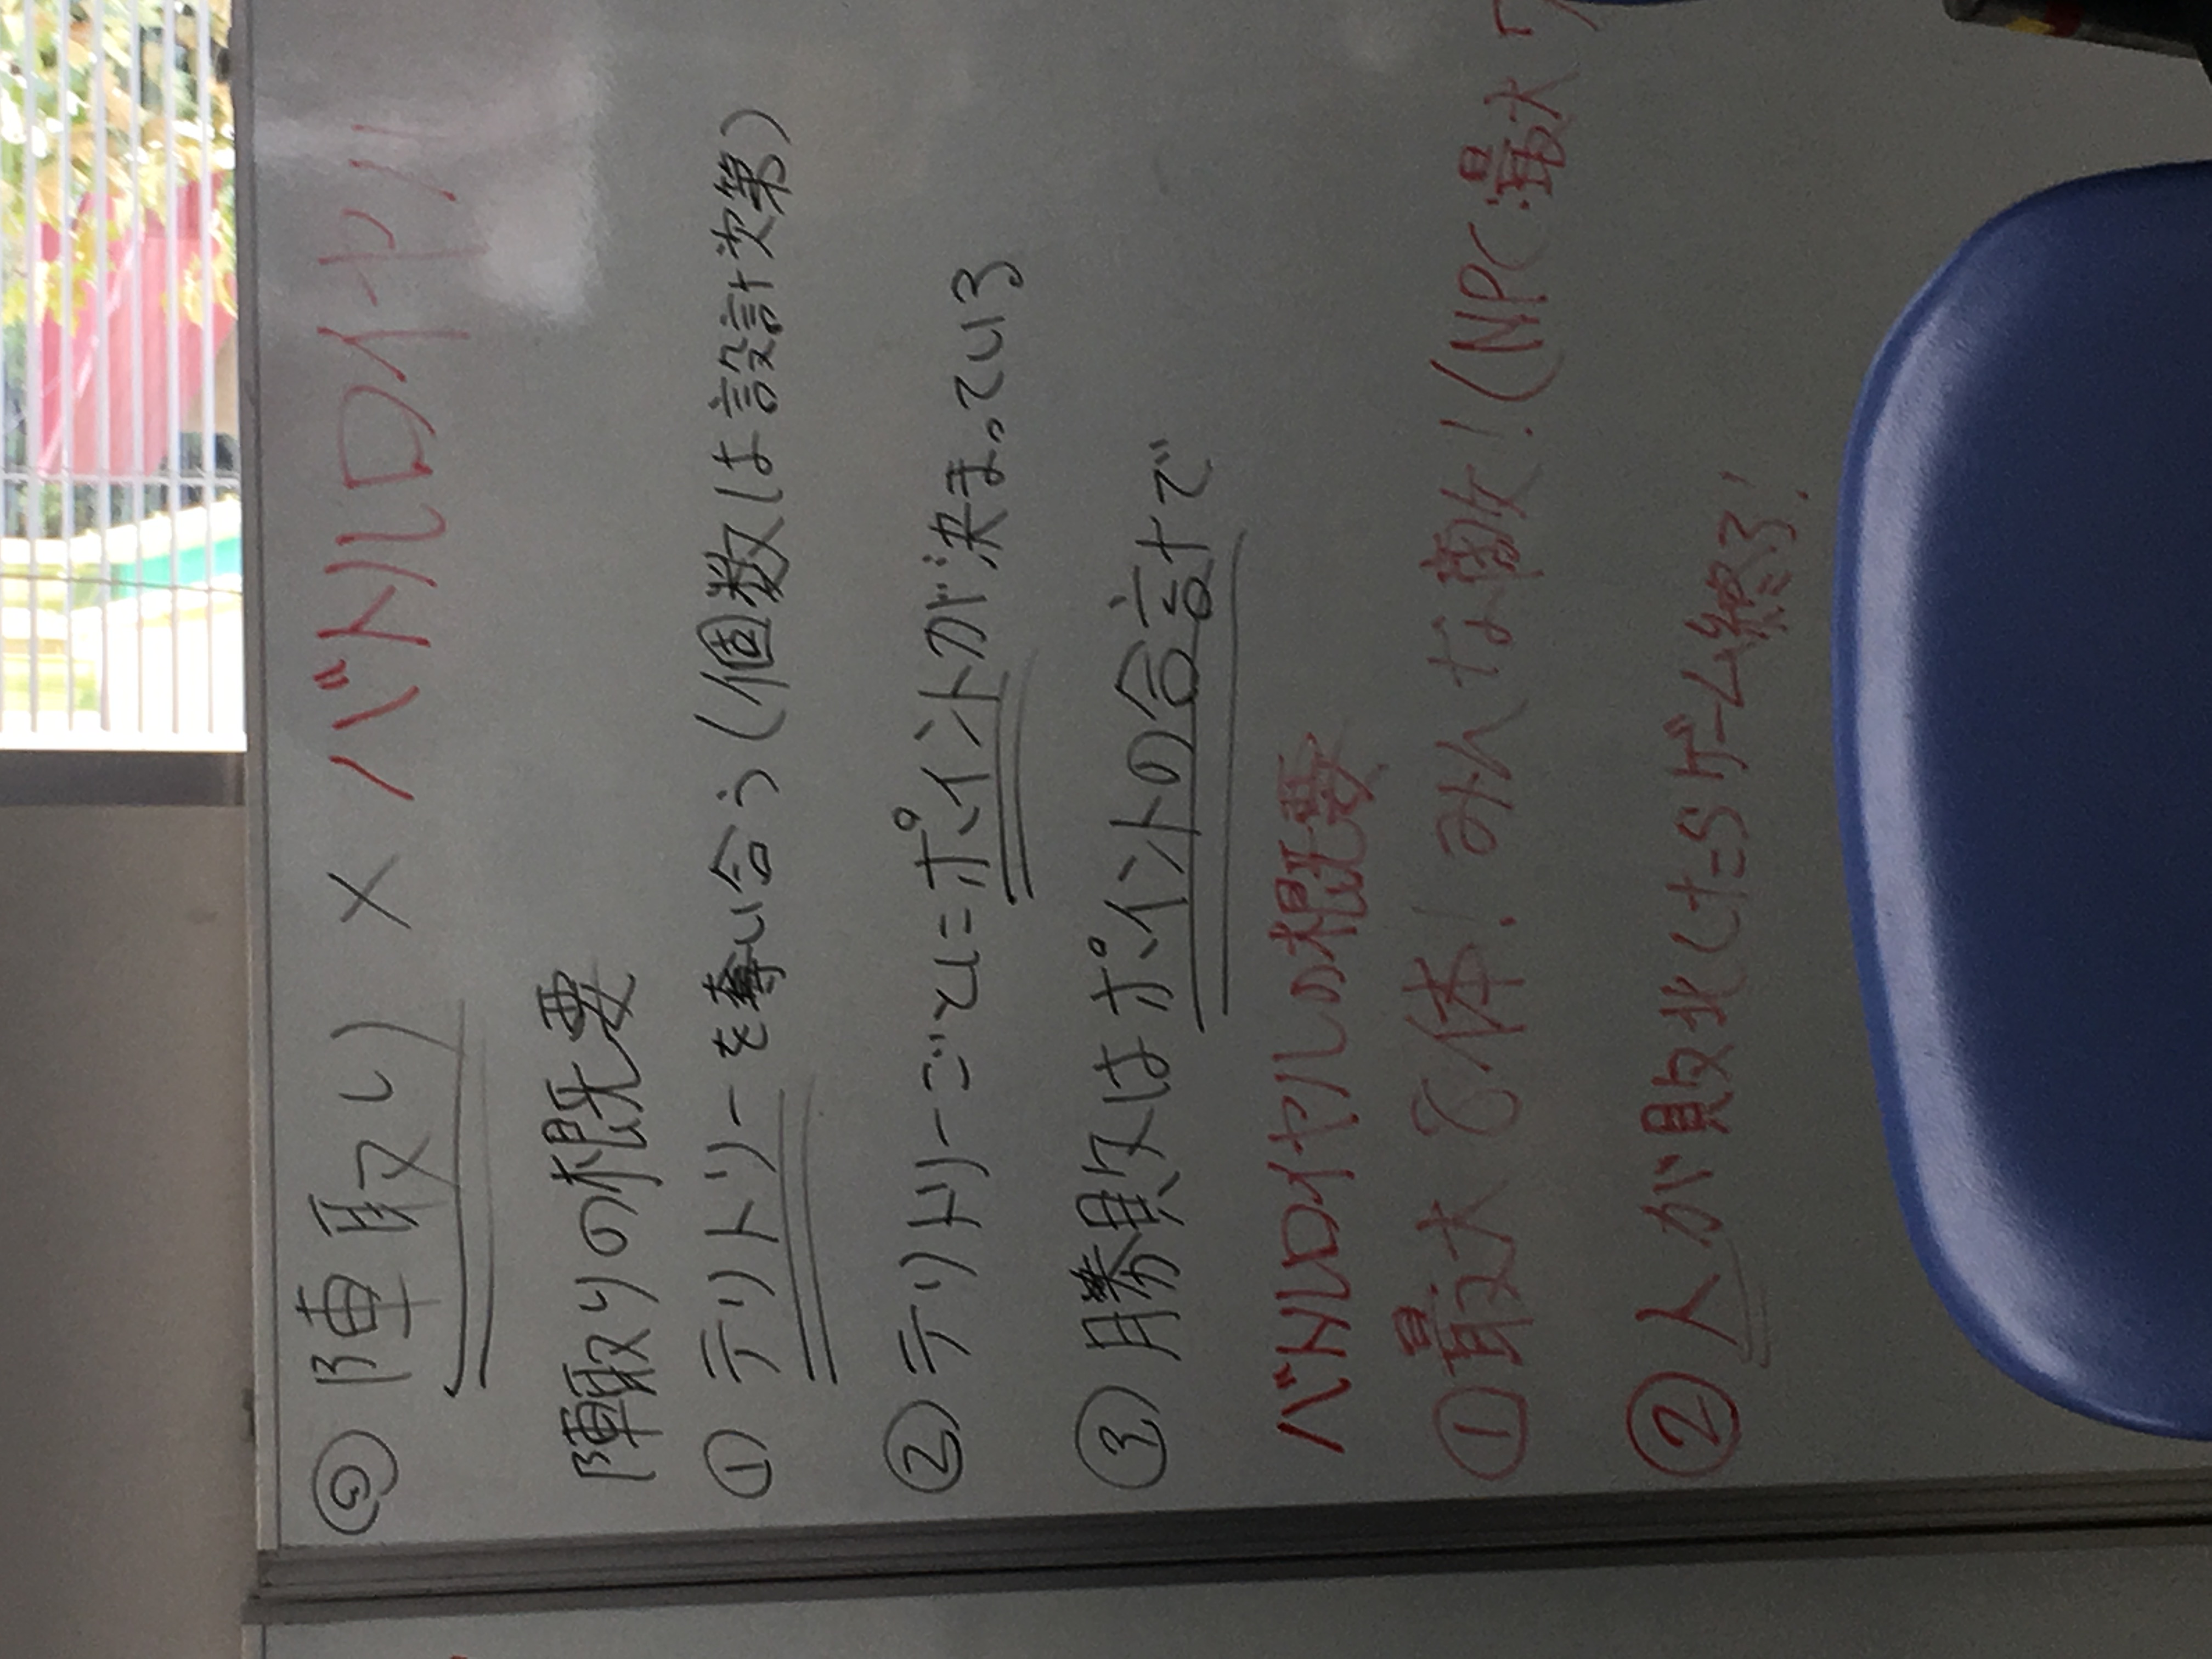 陣取り × バトルロイヤル
陣取りの概要
① テリトリーを奪い合う(個数は設計次第)
② テリトリーごとにポイントが決まっている
③ 勝敗はポイントの合計で
バトルロイヤルの概要
① 最大8体! みんな敵!(NPC:最大7
② 人が敗北したらゲーム終了!